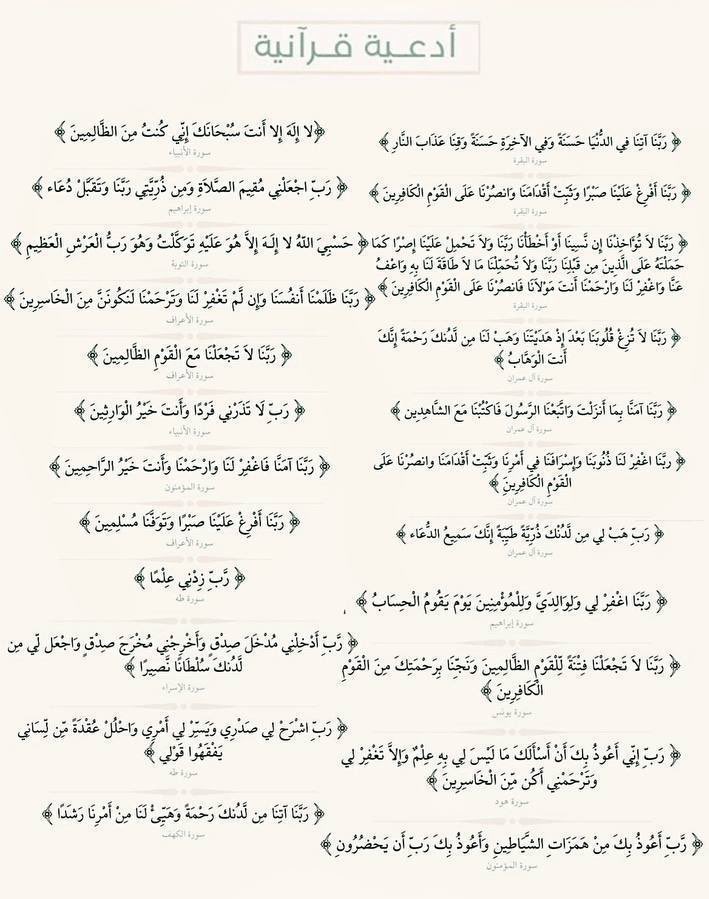 أدعـية قـرآنية
﴿ رَبَّنَا آتِنَا فِي الدُّنْيَا حَسَنَةً وَفِي الآخِرَةِ حَسَنَةً وَقِنَا عَذَابَ النَّارِ ﴾
سورة البقرة
﴿ رَبَّنَا أَفْرِغْ عَلَيْنَا صَبْرًا وَثَبِّتْ أَقْدَامَنَا وَانصُرْنَا عَلَى الْقَوْمِ الْكَافِرِينَ ﴾
سورة البقرة
﴿ رَبَّنَا لاَ تُؤَاخِذْنَا إِن نَّسِينَا أَوْ أَخْطَأْنَا رَبَّنَا وَلاَ تَحْمِلْ عَلَيْنَا إِصْرًا كَمَا
حَمَلْتَهُ عَلَى الَّذِينَ مِن قَبْلِنَا رَبَّنَا وَلاَ تُحَمِّلْنَا مَا لاَ طَاقَةَ لَنَا بِهِ وَاعْفُ
عَنَّا وَاغْفِرْ لَنَا وَارْحَمْنَا أَنتَ مَوْلاَنَا فَانصُرْنَا عَلَى الْقَوْمِ الْكَافِرِينَ ﴾
سورة البقرة
﴿ رَبَّنَا لاَ تُزِغْ قُلُوبَنَا بَعْدَ إِذْ هَدَيْتَنَا وَهَبْ لَنَا مِن لَّدُنكَ رَحْمَةً إِنَّكَ
أَنتَ الْوَهَّابُ ﴾
سورة آل عمران
﴿ رَبَّنَا آمَنَّا بِمَا أَنزَلْتَ وَاتَّبَعْنَا الرَّسُولَ فَاكْتُبْنَا مَعَ الشَّاهِدِينَ ﴾
سورة آل عمران
﴿ ربَّنَا اغْفِرْ لَنَا ذُنُوبَنَا وَإِسْرَافَنَا فِي أَمْرِنَا وَثَبِّتْ أَقْدَامَنَا وانصُرْنَا عَلَى
الْقَوْمِ الْكَافِرِينَ ﴾
سورة آل عمران
﴿ رَبِّ هَبْ لِي مِن لَّدُنْكَ ذُرِّيَّةً طَيِّبَةً إِنَّكَ سَمِيعُ الدُّعَاء ﴾
سورة آل عمران
﴿ رَبَّنَا اغْفِرْ لِي وَلِوَالِدَيَّ وَلِلْمُؤْمِنِينَ يَوْمَ يَقُومُ الْحِسَابُ ﴾
سورة إبراهيم
﴿ رَبَّنَا لاَ تَجْعَلْنَا فِتْنَةً لِّلْقَوْمِ الظَّالِمِينَ وَنَجِّنَا بِرَحْمَتِكَ مِنَ الْقَوْمِ
الْكَافِرِينَ ﴾
سورة يونس
﴿ رَبِّ إِنِّي أَعُوذُ بِكَ أَنْ أَسْأَلَكَ مَا لَيْسَ لِي بِهِ عِلْمٌ وَإِلاَّ تَغْفِرْ لِي
وَتَرْحَمْنِي أَكُن مِّنَ الْخَاسِرِينَ ﴾
سورة هود
﴿ رَّبِّ أَعُوذُ بِكَ مِنْ هَمَزَاتِ الشَّيَاطِينِ وَأَعُوذُ بِكَ رَبِّ أَن يَحْضُرُونِ ﴾
سورة المؤمنون
﴿لا إِلَهَ إِلا أَنتَ سُبْحَانَكَ إِنِّي كُنتُ مِنَ الظَّالِمِينَ ﴾
سورة الأنبياء
﴿ رَبِّ اجْعَلْنِي مُقِيمَ الصَّلاَةِ وَمِن ذُرِّيَّتِي رَبَّنَا وَتَقَبَّلْ دُعَاء ﴾
سورة إبراهيم
﴿ حَسْبِيَ اللّهُ لا إِلَـهَ إِلاَّ هُوَ عَلَيْهِ تَوَكَّلْتُ وَهُوَ رَبُّ الْعَرْشِ الْعَظِيمِ ﴾
سورة التوبة
﴿ رَبَّنَا ظَلَمْنَا أَنفُسَنَا وَإِن لَّمْ تَغْفِرْ لَنَا وَتَرْحَمْنَا لَنَكُونَنَّ مِنَ الْخَاسِرِينَ ﴾
سورة الأعراف
﴿ رَبَّنَا لاَ تَجْعَلْنَا مَعَ الْقَوْمِ الظَّالِمِينَ ﴾
سورة الأعراف
﴿ رَبِّ لَا تَذَرْنِي فَرْدًا وَأَنتَ خَيْرُ الْوَارِثِينَ ﴾
سورة الأنبياء
﴿ رَبَّنَا آمَنَّا فَاغْفِرْ لَنَا وَارْحَمْنَا وَأَنتَ خَيْرُ الرَّاحِمِينَ ﴾
سورة المؤمنون
﴿ رَبَّنَا أَفْرِغْ عَلَيْنَا صَبْرًا وَتَوَفَّنَا مُسْلِمِينَ ﴾
سورة الأعراف
﴿ رَّبِّ زِدْنِي عِلْمًا ﴾
سورة طه
﴿ رَّبِّ أَدْخِلْنِي مُدْخَلَ صِدْقٍ وَأَخْرِجْنِي مُخْرَجَ صِدْقٍ وَاجْعَل لِّي مِن
لَّدُنكَ سُلْطَانًا نَّصِيرًا ﴾
سورة الإسراء
﴿ رَبِّ اشْرَحْ لِي صَدْرِي وَيَسِّرْ لِي أَمْرِي وَاحْلُلْ عُقْدَةً مِّن لِّسَانِي
يَفْقَهُوا قَوْلِي ﴾
سورة طه
﴿ رَبَّنَا آتِنَا مِن لَّدُنكَ رَحْمَةً وَهَيِّئْ لَنَا مِنْ أَمْرِنَا رَشَدًا ﴾
سورة الكهف